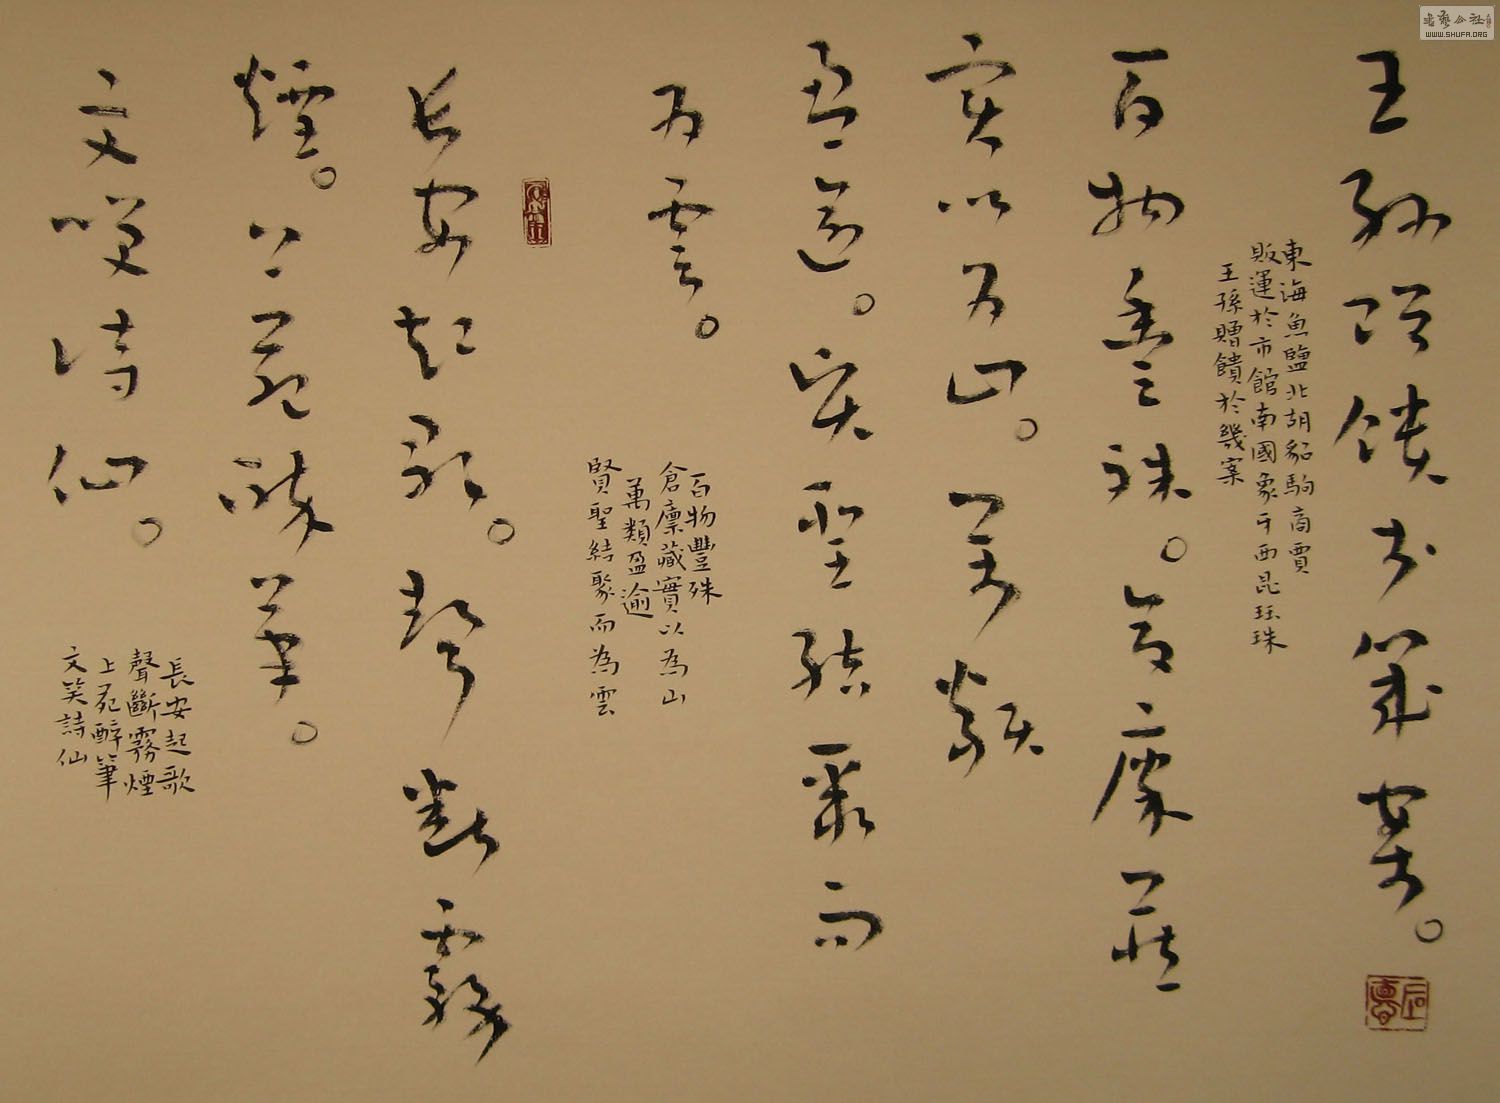 王孫贈饋於幾案。
東海魚鹽北胡貂駒商賈
販運於市館南國象牙西昆珏珠
王孫贈饋於幾案
百物豐殊。倉廩藏
實以為山。萬類
盈逾。賢聖結聚而
為雲。
百物豐殊
倉廩藏實以為山
萬類盈逾
賢聖結聚而為雲
長安起歌。聲斷霧
煙。上苑醉筆。
文笑詩仙。
長安起歌
聲斷霧煙
上苑醉筆
文笑詩仙
WWW.SHUFA.ORG